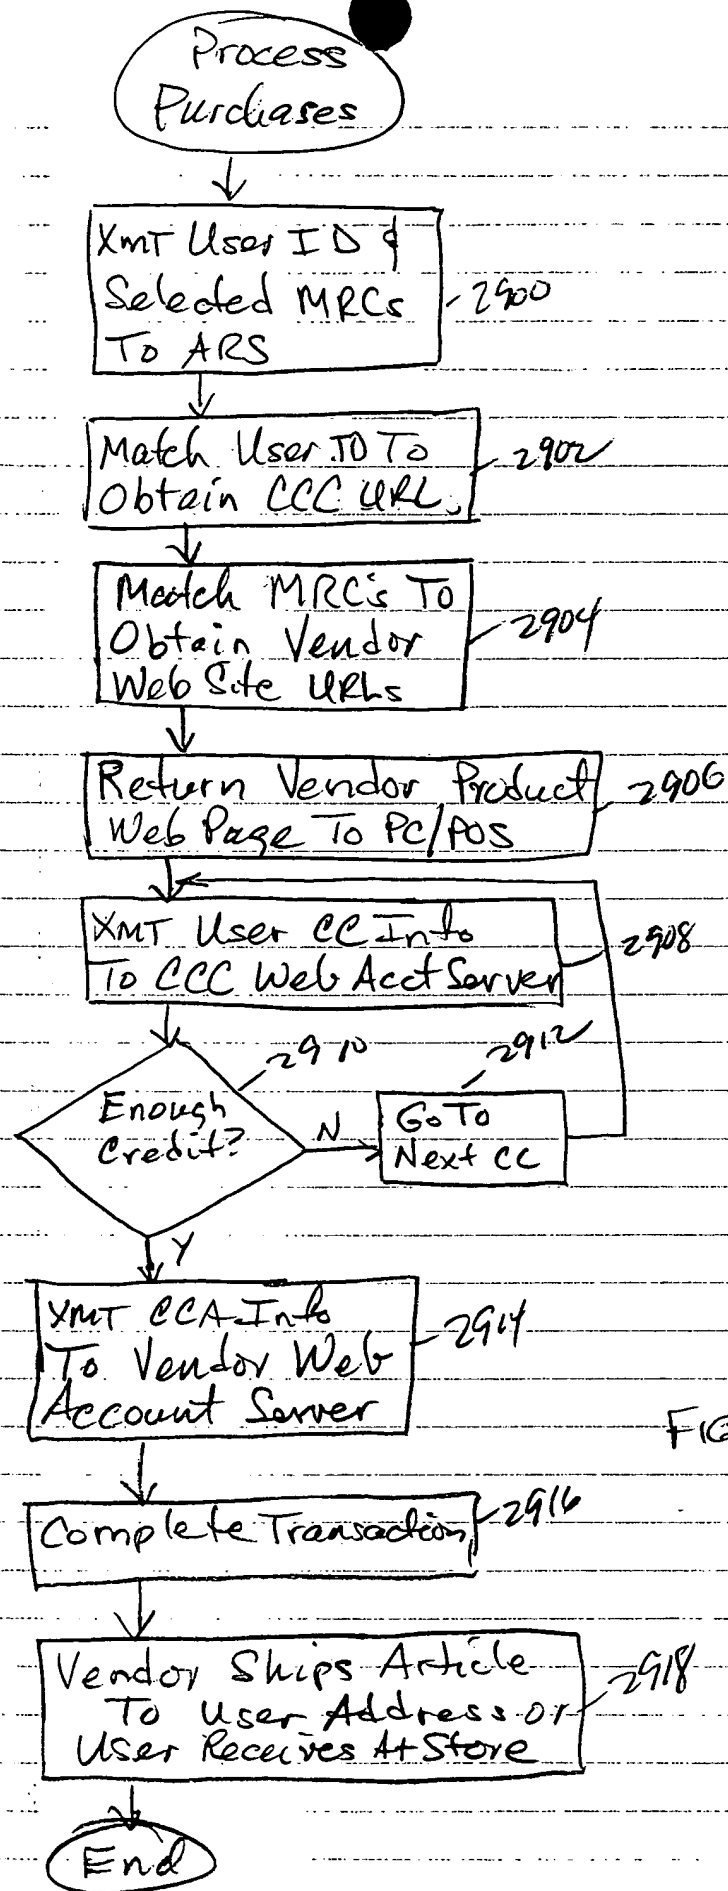 Process
Purchases
XMT User ID &
Selected MRCs
To ARS
2900
Match User ID To
Obtain CCC URL
2902
Match MRC's To
Obtain Vendor
Web Site URLs
2904
Return Vendor Product
Web Page To PC/POS
2906
XMT User CC Info
To CCC Web Acct Server
2908
Enough
Credit?
2910
N
2912
Go To
Next CC
Y
XMT CCA Info
To Vendor Web
Account Server
2914
FIG
Complete Transaction
2916
Vendor Ships Article
To User Address or
User Receives At Store
2918
End